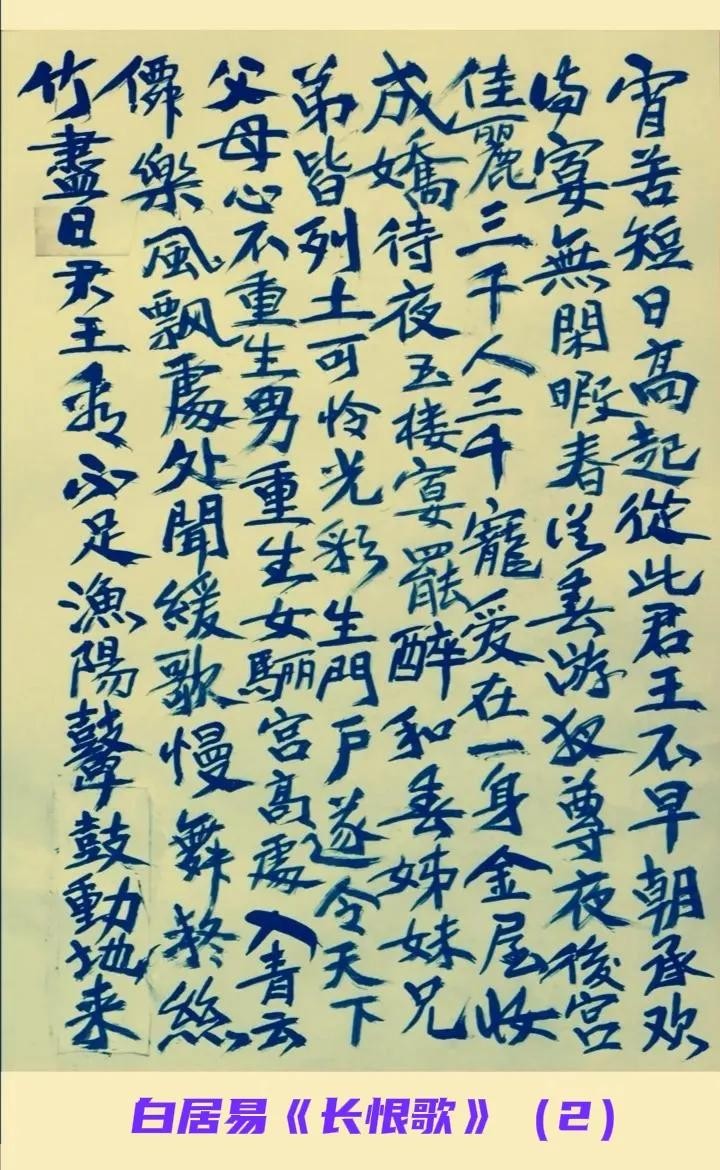 宵苦短日高起從此君王不早朝承欢
侍宴無閑暇春從春游夜尊夜後宫
佳麗三千人三千寵爱在一身金屋妆
成嬌待夜玉楼宴罷醉和春姊妹兄
弟皆列土可怜光彩生門户遂令天下
父母心不重生男重生女驪宫高處入青云
僊樂風飘處处聞緩歌慢舞凝絲
竹盡日君王看不足漁陽鼙鼓動地来
白居易《长恨歌》（2）